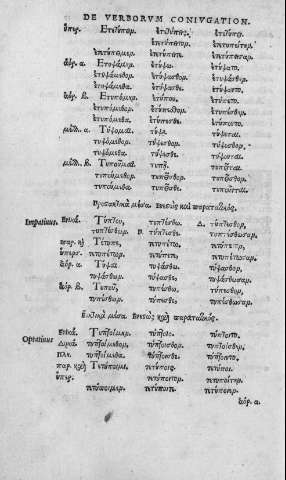 DE VERBORVM CONIVGATION.
ὑπερ. Ἐτετύπειν. ἐτετύπεις. ἐτετύπει.
ἐτετύπειτον. ἐτετυπείτην.
ἐτετύπειμεν. ἐτετύπειτε. ἐτετύπεισαν.
ἀόρ. α. Ἐτυψάμην. ἐτύψω. ἐτύψατο.
ἐτυψάμεθον. ἐτύψασθον. ἐτυψάσθην.
ἐτυψάμεθα. ἐτύψασθε. ἐτύψαντο.
ἀόρ. β. Ἐτυπόμην. ἐτύπου. ἐτύπετο.
ἐτυπόμεθον. ἐτύπεσθον. ἐτυπέσθην.
ἐτυπόμεθα. ἐτύπεσθε. ἐτύποντο.
μέλλ. α. Τύψομαι. τύψῃ. τύψεται.
τυψόμεθον. τύψεσθον. τύψεσθον.
τυψόμεθα. τύψεσθε. τύψονται.
μέλλ. β. Τυποῦμαι. τυπῇ. τυπεῖται.
τυπούμεθον. τυπεῖσθον. τυπεῖσθον.
τυπούμεθα. τυπεῖσθε. τυποῦνται.
Προστακτικὰ μέσα. Ἐνεστὼς καὶ παρατατικός.
Imperatiuus. Ἑνικά. Τύπτου, τυπτέσθω. Δ. τύπτεσθον,
τυπτέσθων. Π. τύπτεσθε, τυπτέσθωσαν.
παρ. καὶ Τέτυπε, τετυπέτω. τετύπετον,
ὑπερσ. τετυπέτων. τετύπετε, τετυπέτωσαν.
ἀόρ. α. Τύψαι. τυψάσθω. τύψασθον.
τυψάσθων. τύψασθε. τυψάσθωσαν.
ἀόρ. β. Τυποῦ, τυπέσθω. τύπεσθον.
τυπέσθων. τύπεσθε. τυπέσθωσαν.
Εὐκτικὰ μέσα. Ἐνεστὼς καὶ παρατατικός.
Optatiuus Ἑνικά. Τυπτοίμην. τύπτοιο. τύπτοιτο.
Δυικά. τυπτοίμεθον. τύπτοισθον. τυπτοίσθην.
Πλη. τυπτοίμεθα. τύπτοισθε. τύπτοιντο.
παρ. καὶ Τετύποιμι. τετύποις. τετύποι.
ὑπερ. τετύποιτον. τετυποίτην.
τετύποιμεν. τετύποιτε. τετύποιεν.
ἀόρ. α.